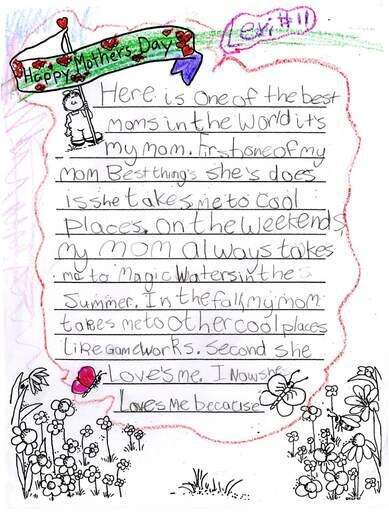 Levi #11
Happy Mothers Day
Here is one of the best
moms in the world it's
my mom. First one of my
mom Best things she's does
is she takes me to cool
places. On the weekends,
my mom always takes
me to Magic Waters in the
Summer. In the fall, my mom
takes me to other cool places
like Gameworks. Second she
Love's me. I Now she
Loves Me because